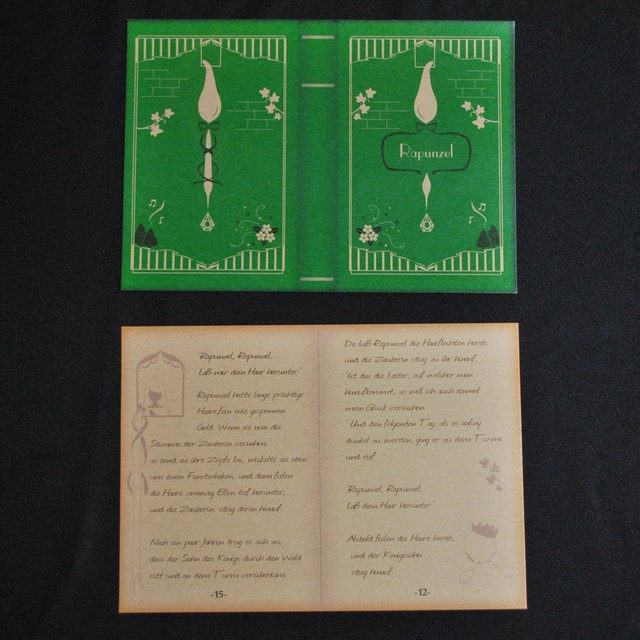 Rapunzel
"Rapunzel, Rapunzel,
laß mir dein Haar herunter."
Rapunzel hatte lange prächtige
Haare, fein wie gesponnen
Gold. Wenn sie nun die
Stimme der Zauberin vernahm,
so band sie ihre Zöpfe los, wickelte sie oben
um einen Fensterhaken, und dann fielen
die Haare zwanzig Ellen tief herunter,
und die Zauberin stieg daran hinauf.
Nach ein paar Jahren trug es sich zu,
dass der Sohn des Königs durch den Wald
ritt und an dem Turm vorüberkam.
-15-
Da ließ Rapunzel die Haarflechten herab,
und die Zauberin stieg zu ihr hinauf.
"Ist das die Leiter, auf welcher man
hinaufkommt, so will ich auch einmal
mein Glück versuchen.
" Und den folgenden Tag, als es anfing
dunkel zu werden, ging er zu dem Turme
und rief
"Rapunzel, Rapunzel,
laß dein Haar herunter."
Alsbald fielen die Haare herab,
und der Königssohn
stieg hinauf.
-12-